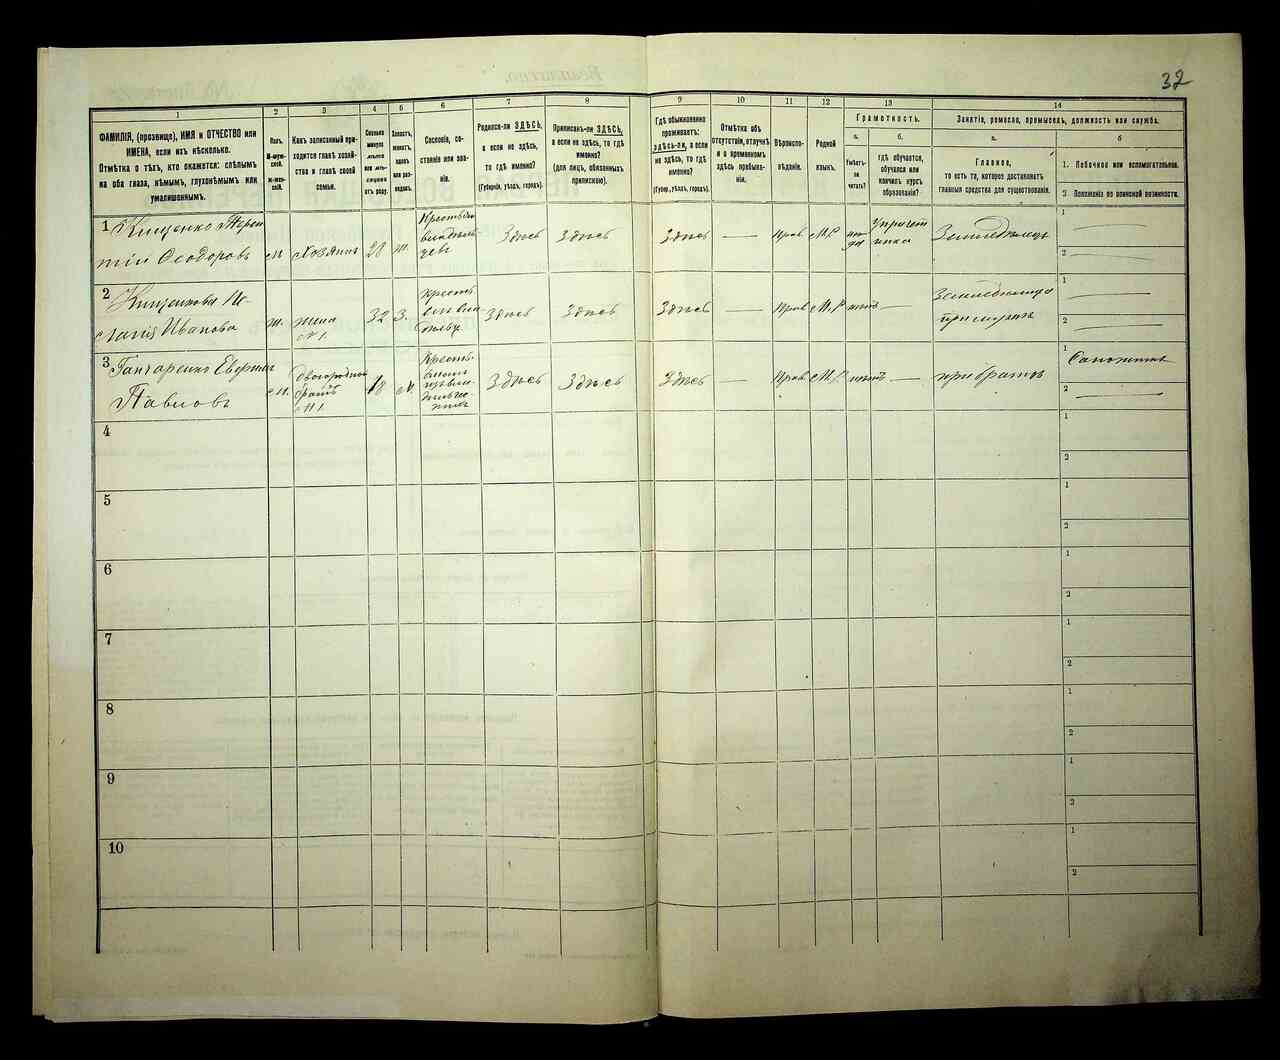 32
1
2
3
4
5
6
7
8
9
10
11
12
13
14
ФАМИЛІЯ, (прозвище), ИМЯ и ОТЧЕСТВО или
ИМЕНА, если ихъ нѣсколько.
Отмѣтка о тѣхъ, кто окажется: слѣпымъ
на оба глаза, нѣмымъ, глухонѣмымъ или
умалишеннымъ.
Полъ.
М-муж-
ской.
Ж-жен-
скій.
Какъ записанный при-
ходится главѣ хозяй-
ства и главѣ своей
семьи.
Сколько
минуло
лѣтъ
или мѣ-
сяцевъ
отъ роду.
Холостъ,
женатъ,
вдовъ
или раз-
веденъ.
Сословіе, со-
стояніе или зва-
ніе.
Родился-ли ЗДѢСЬ,
а если не здѣсь,
то гдѣ именно?
(Губернія, уѣздъ, городъ).
Приписанъ-ли ЗДѢСЬ,
а если не здѣсь, то гдѣ
именно?
(для лицъ, обязанныхъ
припискою).
Гдѣ обыкновенно
проживаетъ:
ЗДѢСЬ-ли, а если
не здѣсь, то гдѣ
именно?
(Губер., уѣздъ, городъ).
Отмѣтка объ
отсутствіи, отлучкѣ
и о временномъ
здѣсь пребыва-
ніи.
Вѣроиспо-
вѣданіе.
Родной
языкъ.
Грамотность.
а.
Умѣетъ-
ли
читать?
б.
гдѣ обучается,
обучался или
кончилъ курсъ
образованія?
Занятіе, ремесло, промыселъ, должность или служба.
а.
Главное,
то есть то, которое доставляетъ
главныя средства для существованія.
б
1. Побочное или вспомогательное.
2 Положеніе по воинской повинности.
1
Ѳеодоровъ
м
хозяинъ
28
ж.
Здѣсь
Здѣсь
Здѣсь
—
Прав
М.Р
да
1
—
2
—
2
Иванова
ж.
жена
№1.
32
З.
Здѣсь
Здѣсь
Здѣсь
—
Прав
М.Р
нѣтъ
—
при мужѣ
1
—
2
—
3
Гончаренко
Павловъ
м.
двоюродной
братъ
№1.
18
Здѣсь
Здѣсь
Здѣсь
—
Прав
М.Р
нѣтъ
—
при братѣ
1
2
—
4
1
2
5
1
2
6
1
2
7
1
2
8
1
2
9
1
2
10
1
2